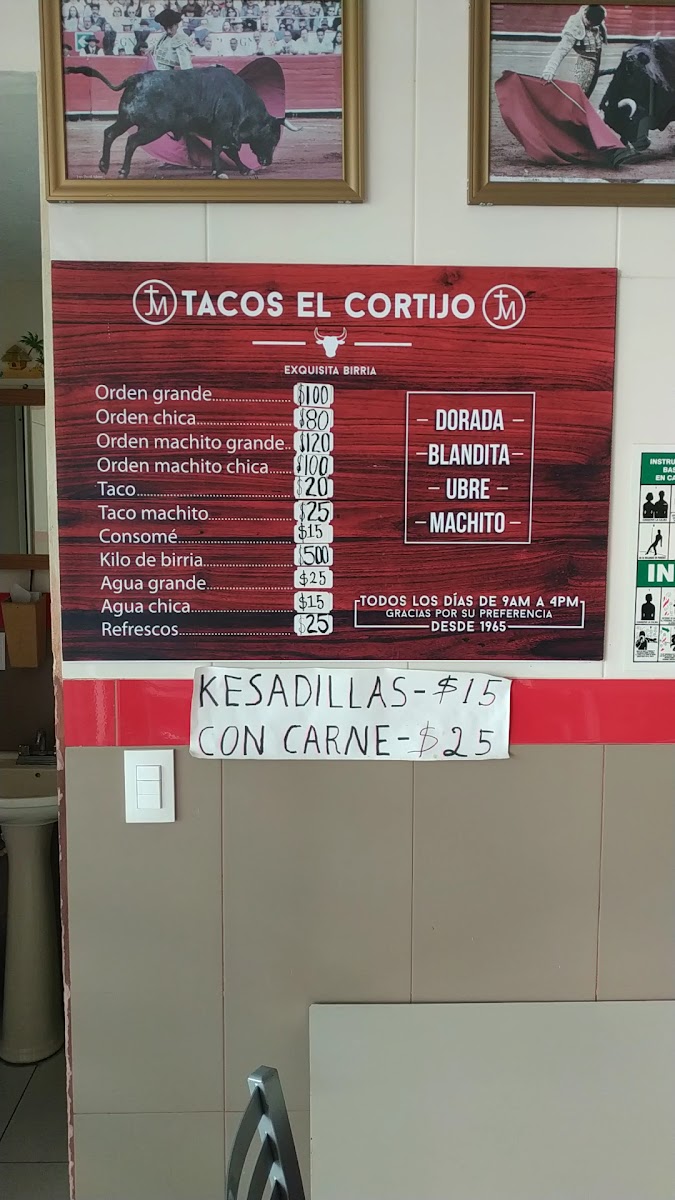 JM TACOS EL CORTIJO JM
EXQUISITA BIRRIA
Orden grande $100
Orden chica $80
Orden machito grande $120
Orden machito chica $100
Taco $20
Taco machito $25
Consomé $15
Kilo de birria $500
Agua grande $25
Agua chica $15
Refrescos $25
- DORADA -
- BLANDITA -
- UBRE -
- MACHITO -
TODOS LOS DÍAS DE 9AM A 4PM
GRACIAS POR SU PREFERENCIA
DESDE 1965
KESADILLAS-$15
CON CARNE-$25
EN CA
IN